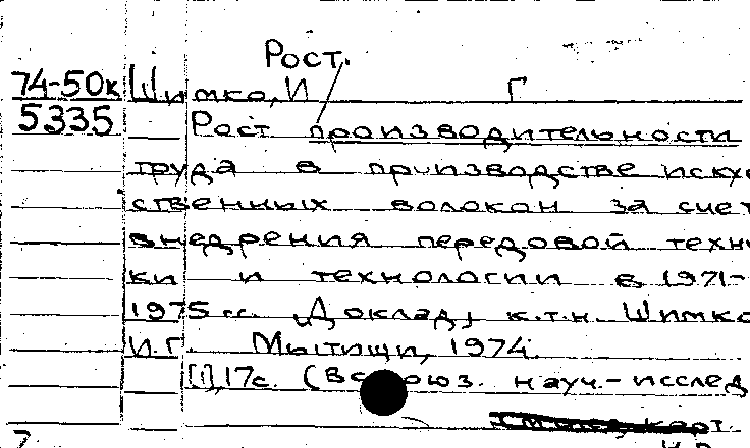 Рост.
74-50к Шимко, И Г
5335 Рост производительности
труда в производстве искус
ственных волокон за счет
внедрения передовой техни
ки и технологии в 1971-
1975 гг. [Доклад] к.т.н. Шимко
И.Г. Мытищи, 1974.
[1], 17с. (Всесоюз. науч.-исслед
карт.